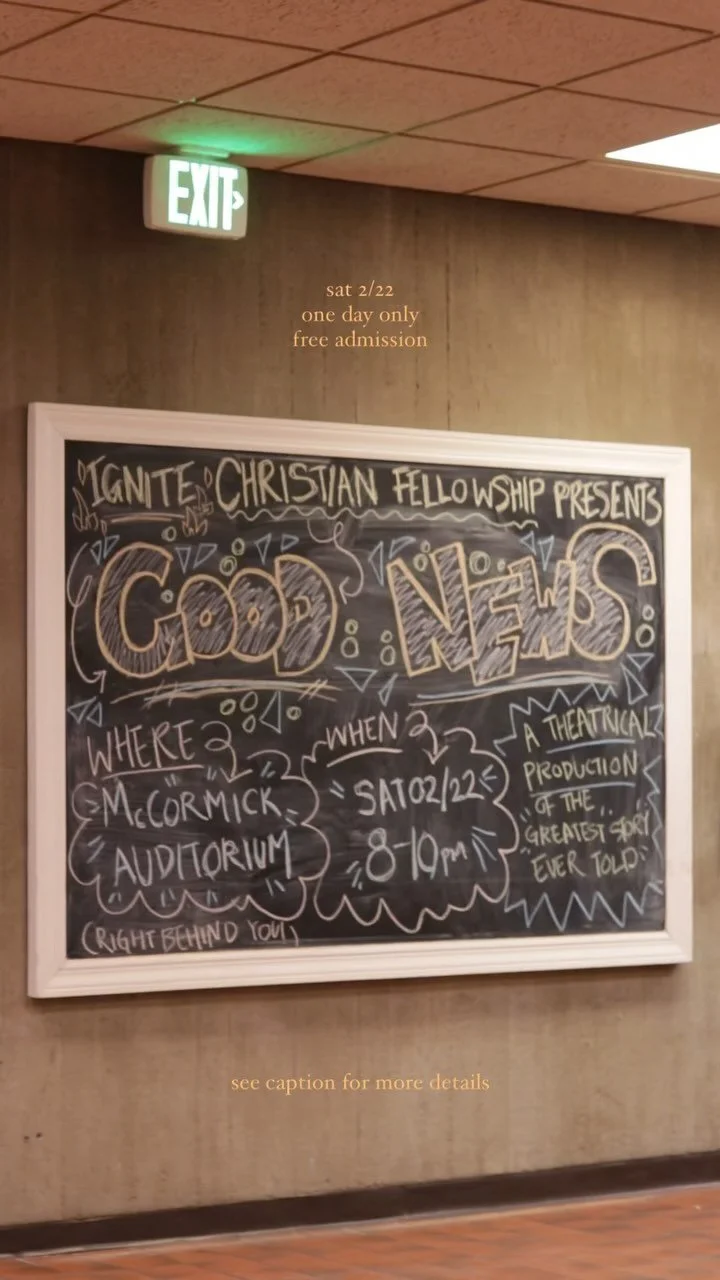 EXIT
sat 2/22
one day only
free admission
IGNITE CHRISTIAN FELLOWSHIP PRESENTS
GOOD NEWS
WHERE
McCORMICK
AUDITORIUM
(RIGHT BEHIND YOU)
WHEN
SAT 02/22
8-10pm
A THEATRICAL
PRODUCTION
OF THE
GREATEST STORY
EVER TOLD
see caption for more details